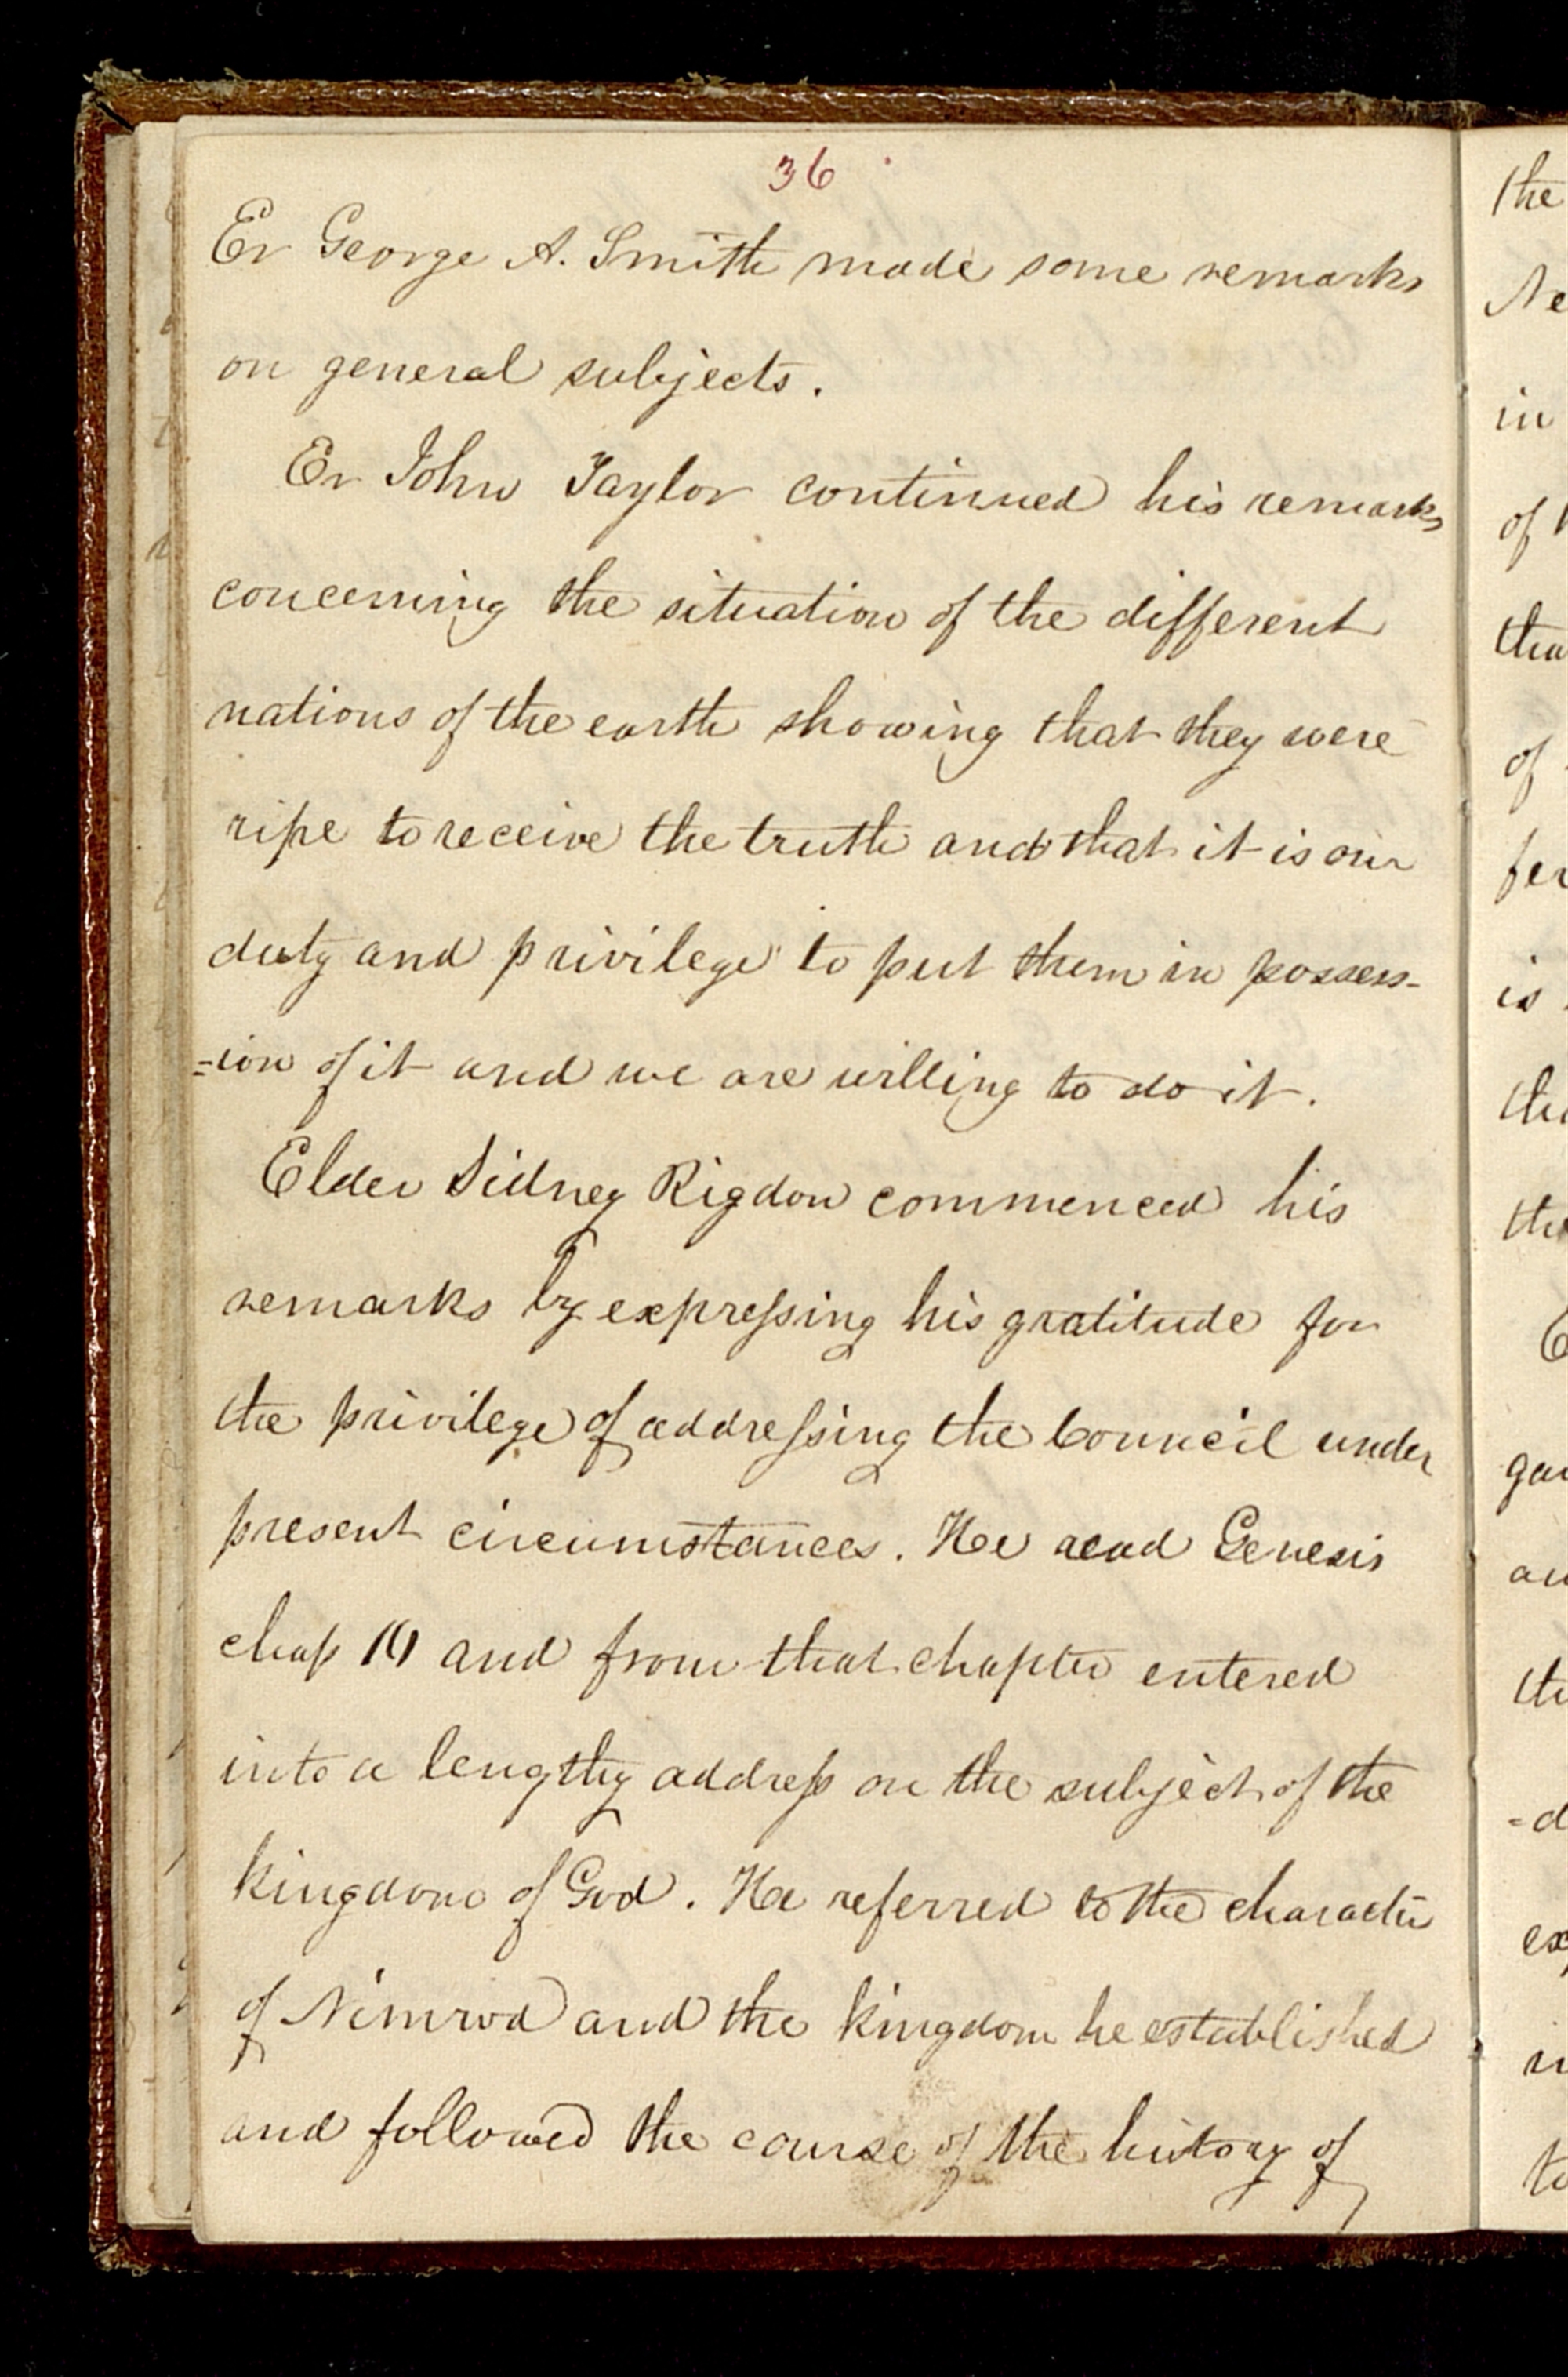 36
Er George A. Smith made some remarks
on general subjects.
Er John Taylor continued his remarks
concerning the situation of the different
nations of the earth showing that they were
ripe to receive the truth and that it is our
duty and privilege to put them in possess-
=ion of it and we are willing to do it.
Elder Sidney Rigdon commenced his
remarks by expressing his gratitude for
the privilege of addressing the Council under
present circumstances. He read Genesis
chap and from that chapter entered
into a lengthy address on the subject of the
kingdom of God. He referred to the character
of Nimrod and the kingdom he established
and followed the course of the history of
the
Ne
in
of
tha
of
fer
is
the
the
E
gar
an
the
=d
ex
in
to